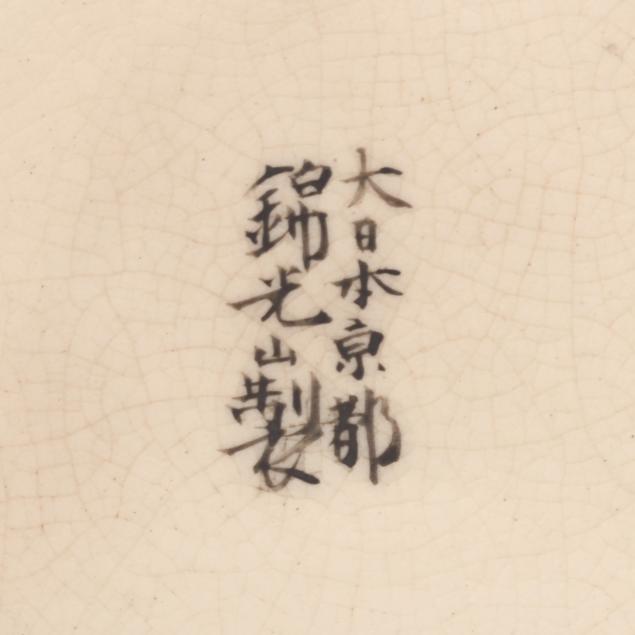 大日本京都
錦光山製